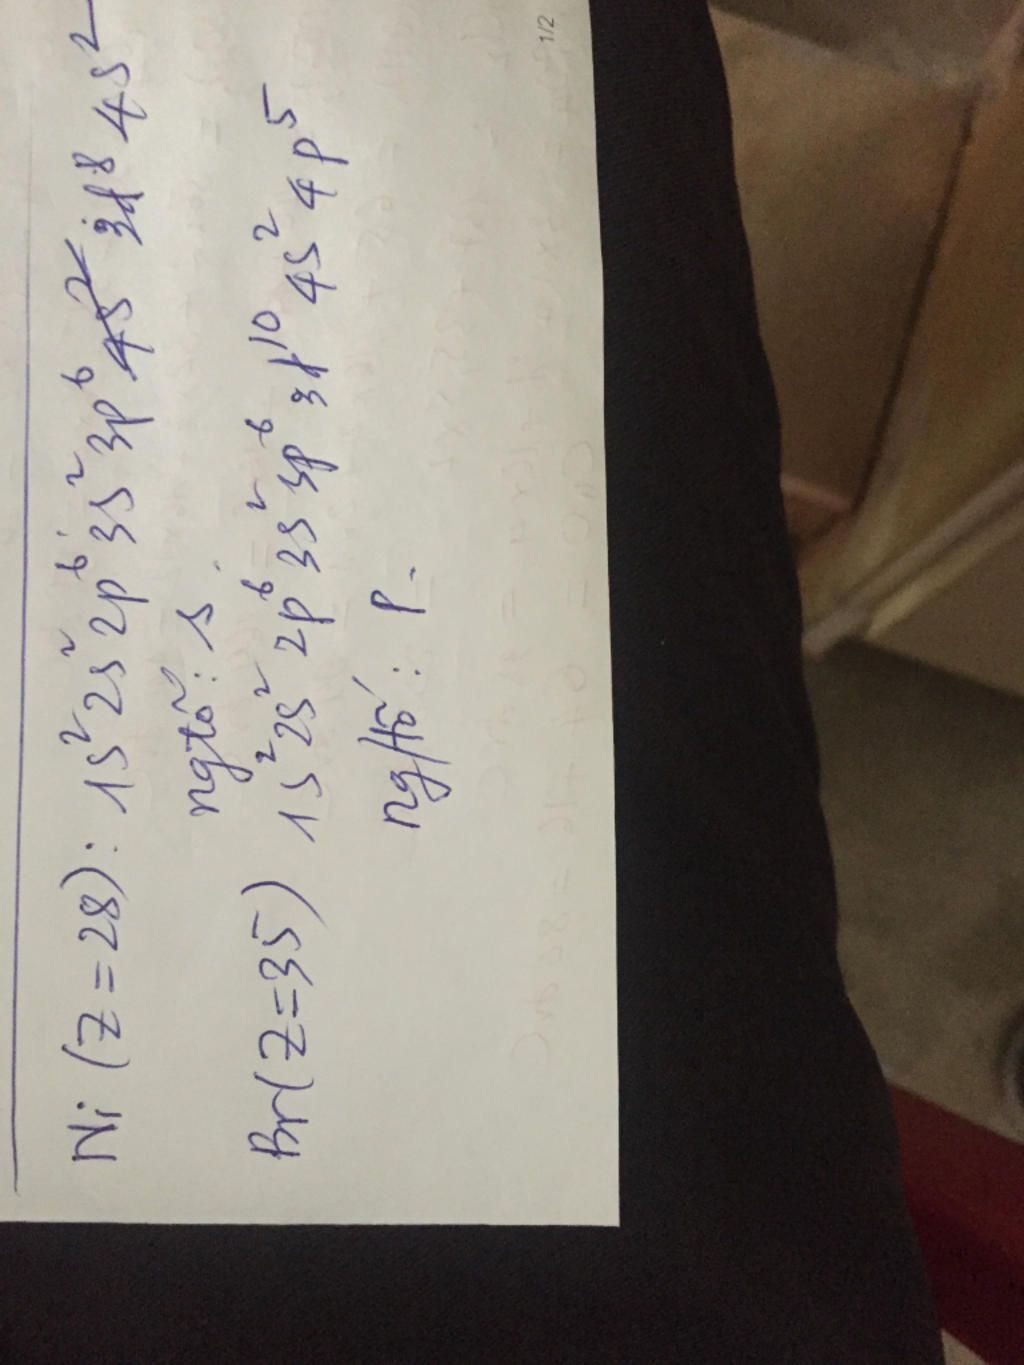 Ni (Z=28): 1s² 2s² 2p⁶ 3s² 3p⁶ 4s² 3d⁸ 4s²
ngtố: s
Br(Z=35) 1s² 2s² 2p⁶ 3s² 3p⁶ 3d¹⁰ 4s² 4p⁵
ng/tố: p.
1/2